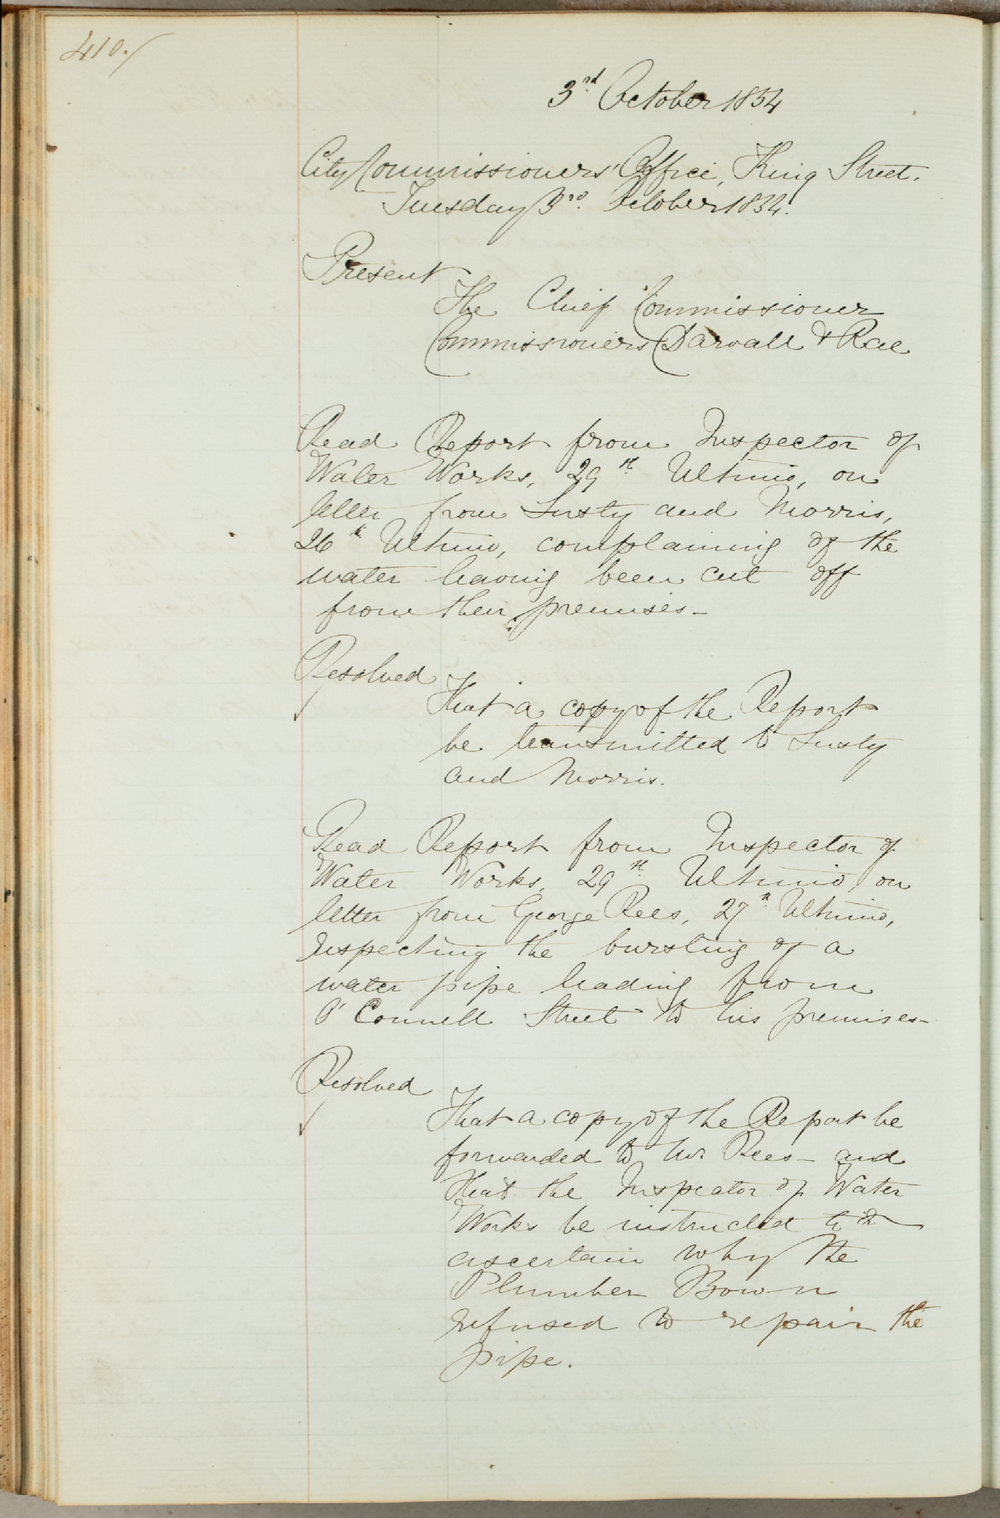 410./
3rd October 1854
City Commissioners' Office, King Street.
Tuesday 3rd. October 1854.
Present
The Chief Commissioner
Commissioners Darvall & Rae
Read Report from Inspector of
Water Works, 29th Ultimo, on
letter from Lusty and Morris,
26th Ultimo, complaining of the
water having been cut off
from their premises_
Resolved
That a copy of the Report
be transmitted to Lusty
and Morris.
Read Report from Inspector of
Water Works, 29th Ultimo, on
letter from George Rees, 27th Ultimo,
respecting the bursting of a
water pipe leading from
O'Connell Street to his premises_
Resolved
That a copy of the Report be
forwarded to Mr Rees_ and
that the Inspector of Water
Works be instructed to
ascertain why the
Plumber Bown
refused to repair the
pipe.